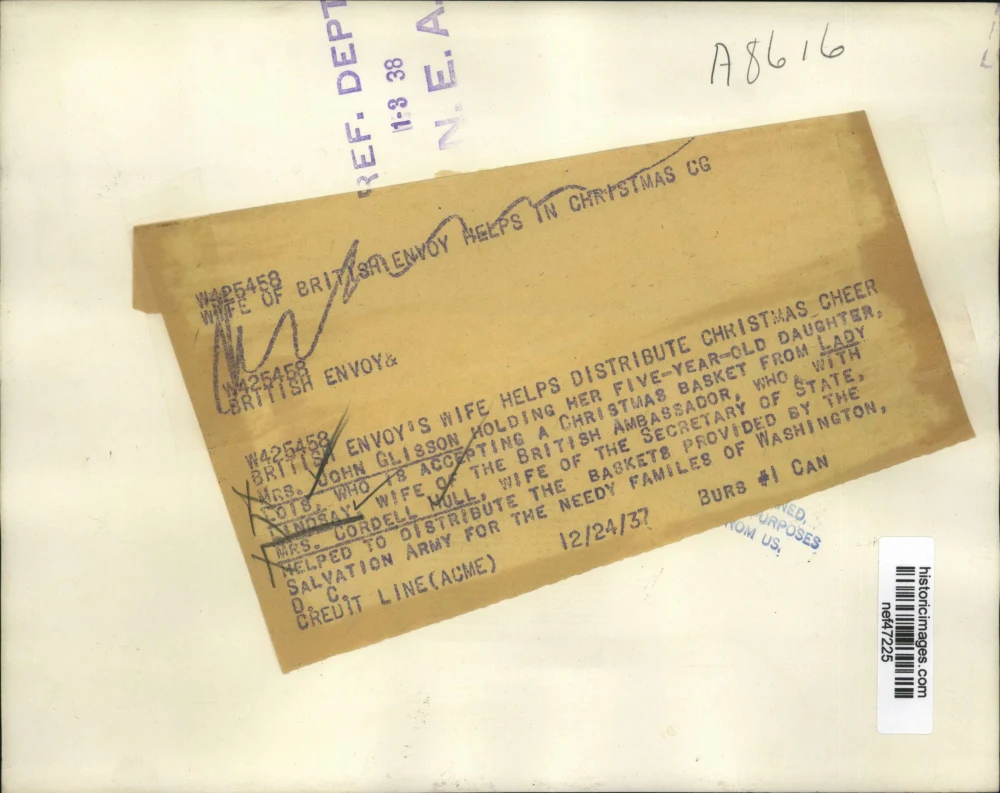 REF. DEPT
1-3 38
N. E. A.
A8616
W425458
WIFE OF BRITISH ENVOY HELPS IN CHRISTMAS CG
W425458
BRITISH ENVOY&
W425458
BRITISH ENVOY'S WIFE HELPS DISTRIBUTE CHRISTMAS CHEER
MRS. JOHN GLISSON HOLDING HER FIVE-YEAR-OLD DAUGHTER,
WHO IS ACCEPTING A CHRISTMAS BASKET FROM LADY
LINDSAY, WIFE OF THE BRITISH AMBASSADOR, WHO, WITH
MRS. CORDELL HULL, WIFE OF THE SECRETARY OF STATE,
HELPED TO DISTRIBUTE THE BASKETS PROVIDED BY THE
SALVATION ARMY FOR THE NEEDY FAMILES OF WASHINGTON,
D. C.
CREDIT LINE(ACME) 12/24/37 BURS #1 CAN
NED,
URPOSES
ROM US.
historicimages.com
nef47225